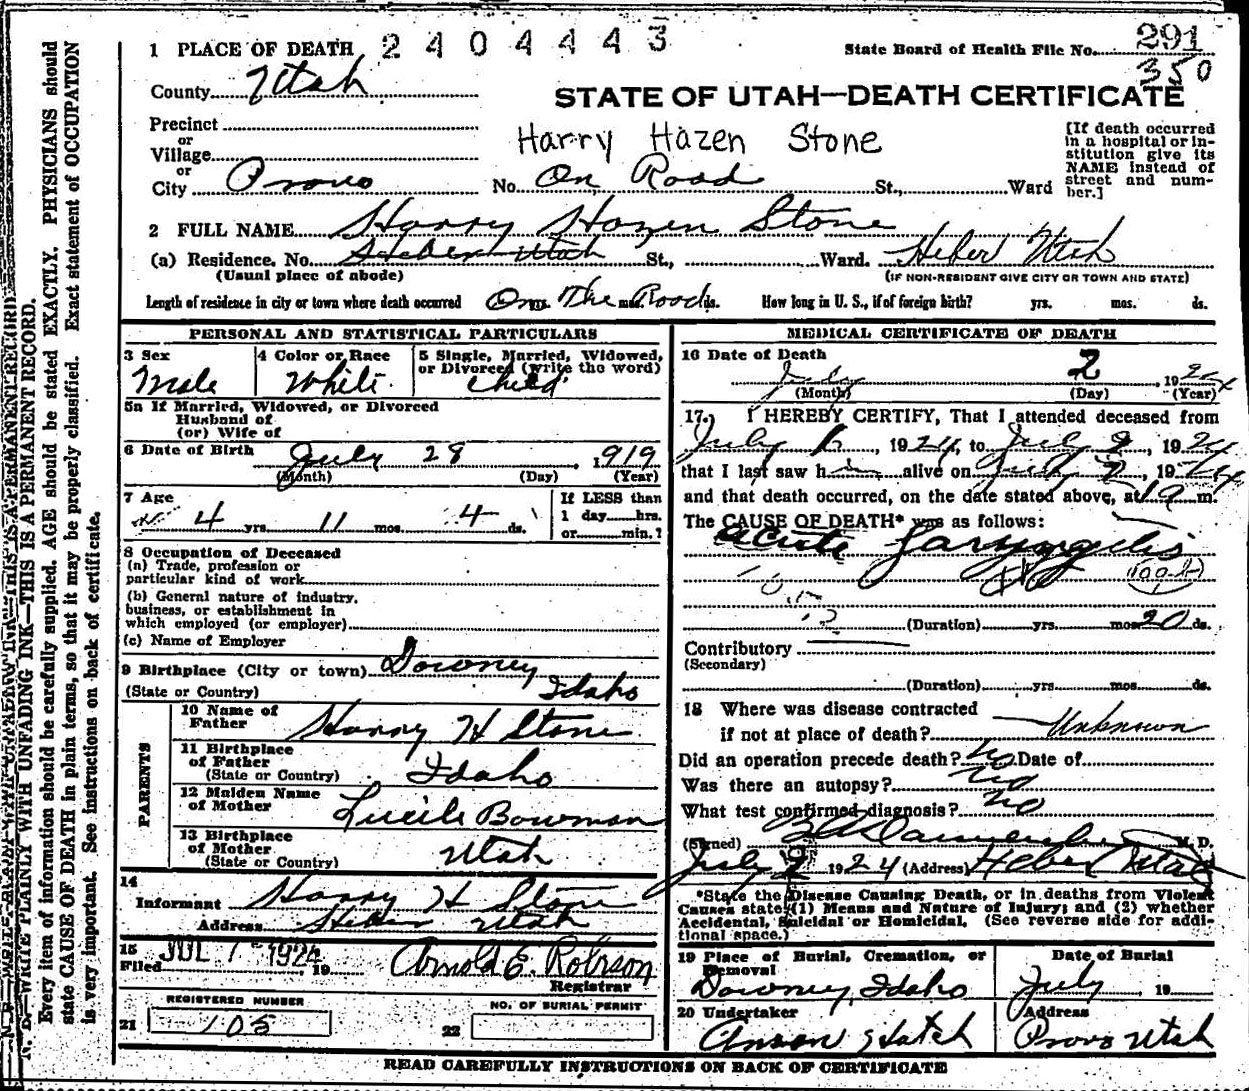 1 PLACE OF DEATH 2404443
State Board of Health File No. 291
350
County Utah
STATE OF UTAH—DEATH CERTIFICATE
Precinct
or
Village
or
City Provo No. On Road St., Ward
Harry Hazen Stone
[If death occurred
in a hospital or in-
stitution give its
NAME instead of
street and num-
ber.]
2 FULL NAME Harry Hazen Stone
(a) Residence. No. Heber Utah St., Ward. Heber Utah
(Usual place of abode) (IF NON-RESIDENT GIVE CITY OR TOWN AND STATE)
Length of residence in city or town where death occurred On yrs. The mos. Road ds. How long in U. S., if of foreign birth? yrs. mos. ds.
PERSONAL AND STATISTICAL PARTICULARS
3 Sex
Male
4 Color or Race
White
5 Single, Married, Widowed,
or Divorced (write the word)
Child
5a If Married, Widowed, or Divorced
Husband of
(or) Wife of
6 Date of Birth July 28, 1919
(Month) (Day) (Year)
7 Age
4 yrs. 11 mos. 4 ds.
If LESS than
1 day hrs.
or min.?
8 Occupation of Deceased
(a) Trade, profession or
particular kind of work
(b) General nature of industry,
business, or establishment in
which employed (or employer)
(c) Name of Employer
9 Birthplace (City or town) Downey
(State or Country) Idaho
PARENTS
10 Name of
Father Harry H Stone
11 Birthplace
of Father
(State or Country) Idaho
12 Maiden Name
of Mother Lucile Bowman
13 Birthplace
of Mother
(State or Country) Utah
14
Informant Harry H Stone
Address Heber Utah
15
Filed JUL 7 1924, 19 Arnold E. Robison
Registrar
REGISTERED NUMBER
21 105
NO. OF BURIAL PERMIT
22
MEDICAL CERTIFICATE OF DEATH
16 Date of Death
July 2, 1924
(Month) (Day) (Year)
17. I HEREBY CERTIFY, That I attended deceased from
July 1, 1924, to July 2, 1924
that I last saw him alive on July 2, 1924
and that death occurred, on the date stated above, at m.
The CAUSE OF DEATH* was as follows:
Acute Laryngitis
(Duration) yrs. mos. 20 ds.
Contributory
(Secondary)
(Duration) yrs. mos. ds.
18 Where was disease contracted
if not at place of death? Unknown
Did an operation precede death? No Date of
Was there an autopsy? No
What test confirmed diagnosis? No
(Signed) M. D.
July 2 1924 (Address) Heber Utah
*State the Disease Causing Death, or in deaths from Violent
Causes state (1) Means and Nature of Injury; and (2) whether
Accidental, Suicidal or Homicidal. (See reverse side for addi-
tional space.)
19 Place of Burial, Cremation, or
Removal
Downey, Idaho
Date of Burial
July 19
20 Undertaker
Anson Hatch
Address
Provo Utah
READ CAREFULLY INSTRUCTIONS ON BACK OF CERTIFICATE
WRITE PLAINLY WITH UNFADING INK—THIS IS A PERMANENT RECORD.
Every item of information should be carefully supplied. AGE should be stated EXACTLY. PHYSICIANS should
state CAUSE OF DEATH in plain terms, so that it may be properly classified. Exact statement of OCCUPATION
is very important. See instructions on back of certificate.